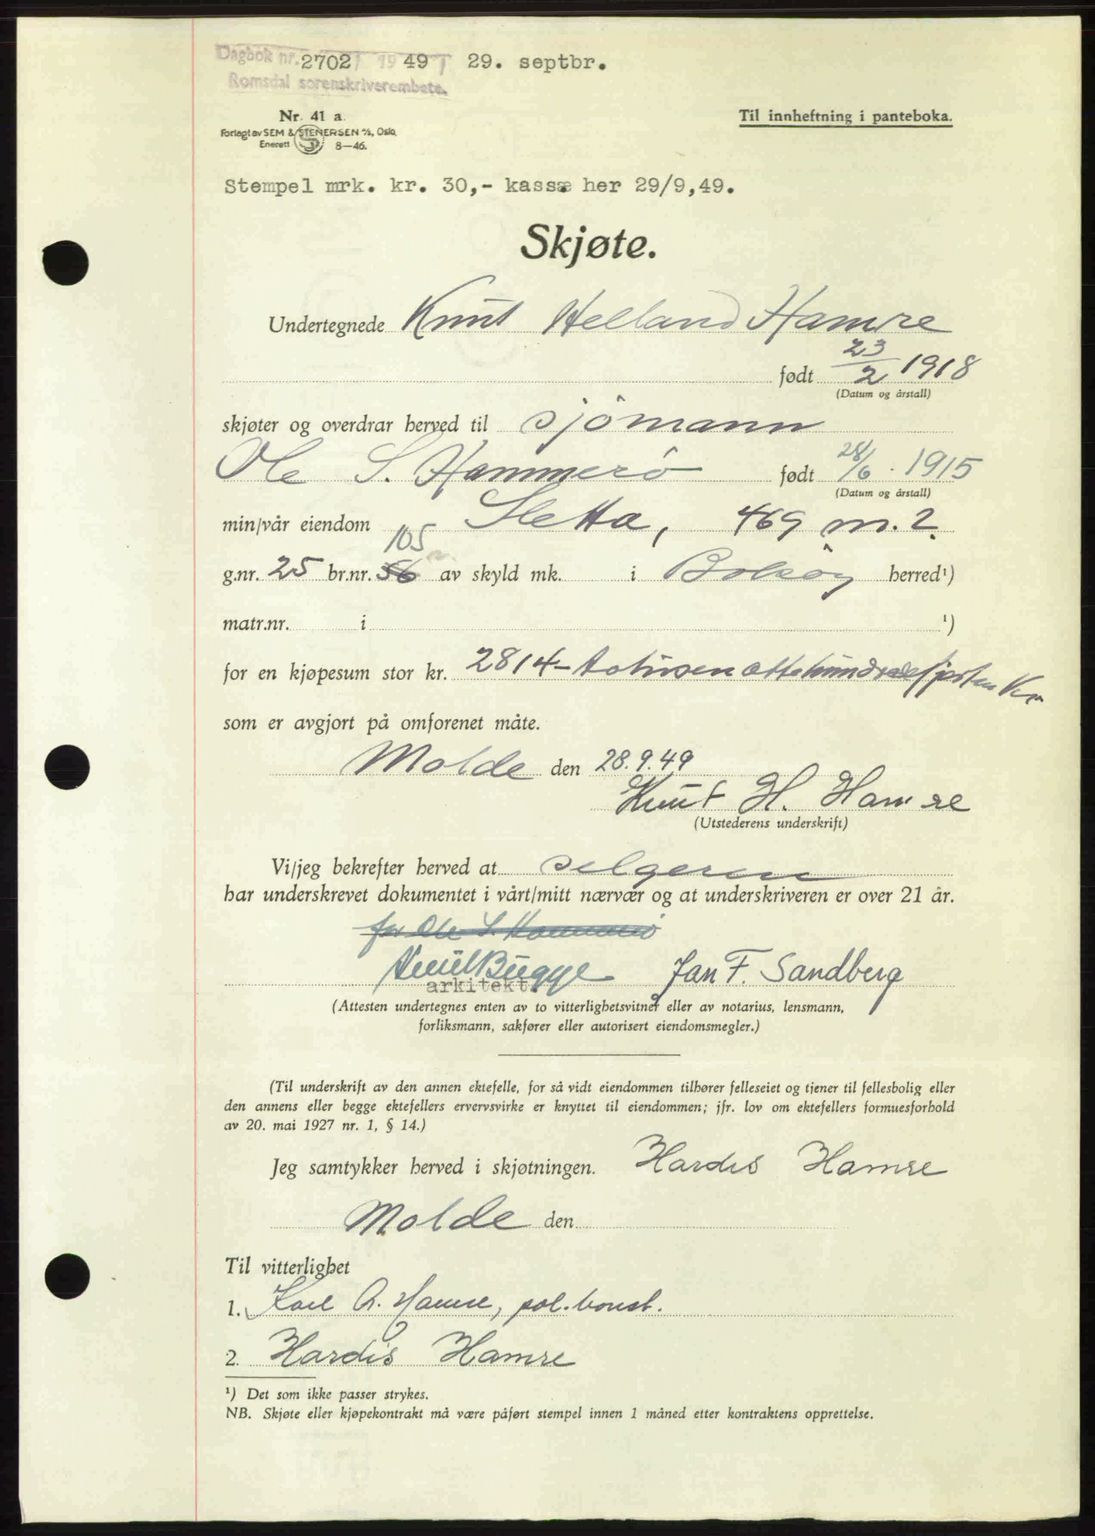 Dagbok nr. 2702 1949 29. septbr.
Romsdal sorenskriverembete.
Nr. 41 a.
Forlagt av SEM & STENERSEN A/S, Oslo.
Enerett 8—46.
Til innheftning i panteboka.
Stempel mrk. kr. 30,- kassæ her 29/9,49.
Skjøte.
Undertegnede Knut Helland Hamre
født 23/2 1918
(Datum og årstall)
skjøter og overdrar herved til sjömann
Ole S. Hammerö født 28/6. 1915
(Datum og årstall)
min/vår eiendom Sletta, 469 m.2.
105
g.nr. 25 br.nr. 56 av skyld mk. i Bolsöy herred¹)
matr.nr. i ¹)
for en kjøpesum stor kr. 2814- totusenåttehundreogfjorten Kr
som er avgjort på omforenet måte.
Molde den 28.9.49
Knut H. Hamre
(Utstederens underskrift)
Vi/jeg bekrefter herved at selgeren
har underskrevet dokumentet i vårt/mitt nærvær og at underskriveren er over 21 år.
for Ole S. Hammerö
Bugge Jan F. Sandberg
arkitekt
(Attesten undertegnes enten av to vitterlighetsvitner eller av notarius, lensmann,
forliksmann, sakfører eller autorisert eiendomsmegler.)
(Til underskrift av den annen ektefelle, for så vidt eiendommen tilhører felleseiet og tjener til fellesbolig eller
den annens eller begge ektefellers ervervsvirke er knyttet til eiendommen; jfr. lov om ektefellers formuesforhold
av 20. mai 1927 nr. 1, § 14.)
Jeg samtykker herved i skjøtningen. Hardis Hamre
Molde den
Til vitterlighet
1. Karl A. Hamre, pol.konst.
2. Hardis Hamre
¹) Det som ikke passer strykes.
NB. Skjøte eller kjøpekontrakt må være påført stempel innen 1 måned etter kontraktens opprettelse.